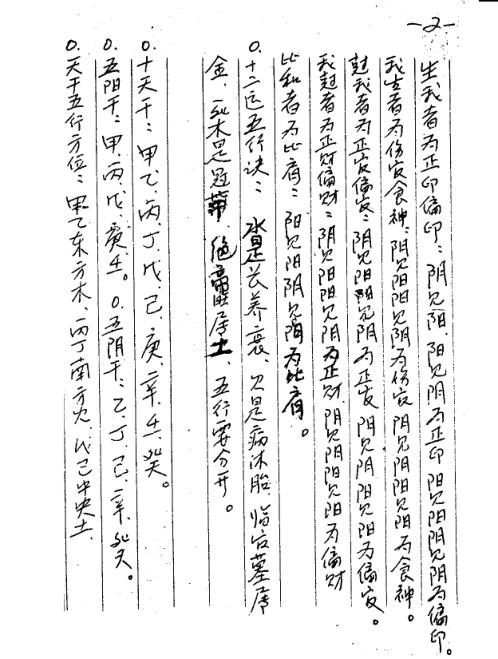 -2-
生我者为正印偏印：阴见阳、阳见阴为正印 阳见阳阴见阴为偏印。
我生者为伤官食神：阴见阳阳见阴为伤官 阴见阴阳见阳为食神。
尅我者为正官偏官：阴见阳阳见阴为正官 阴见阴阳见阳为偏官。
我尅者为正财偏财：阴见阳阳见阴为正财 阴见阴阳见阳为偏财
比和者为比肩：阳见阳阴见阴为比肩。
0.十二运五行诀：水是长养衰、火是病沐胎、临官墓库
金、癸木是冠带、绝库土、五行要分开。
0.十天干：甲乙、丙、丁、戊、己、庚、辛、壬、癸。
0.五阳干：甲、丙、戊、庚、壬。0.五阴干：乙、丁、己、辛、癸。
0.天干五行方位：甲乙东方木、丙丁南方火、戊己中央土、